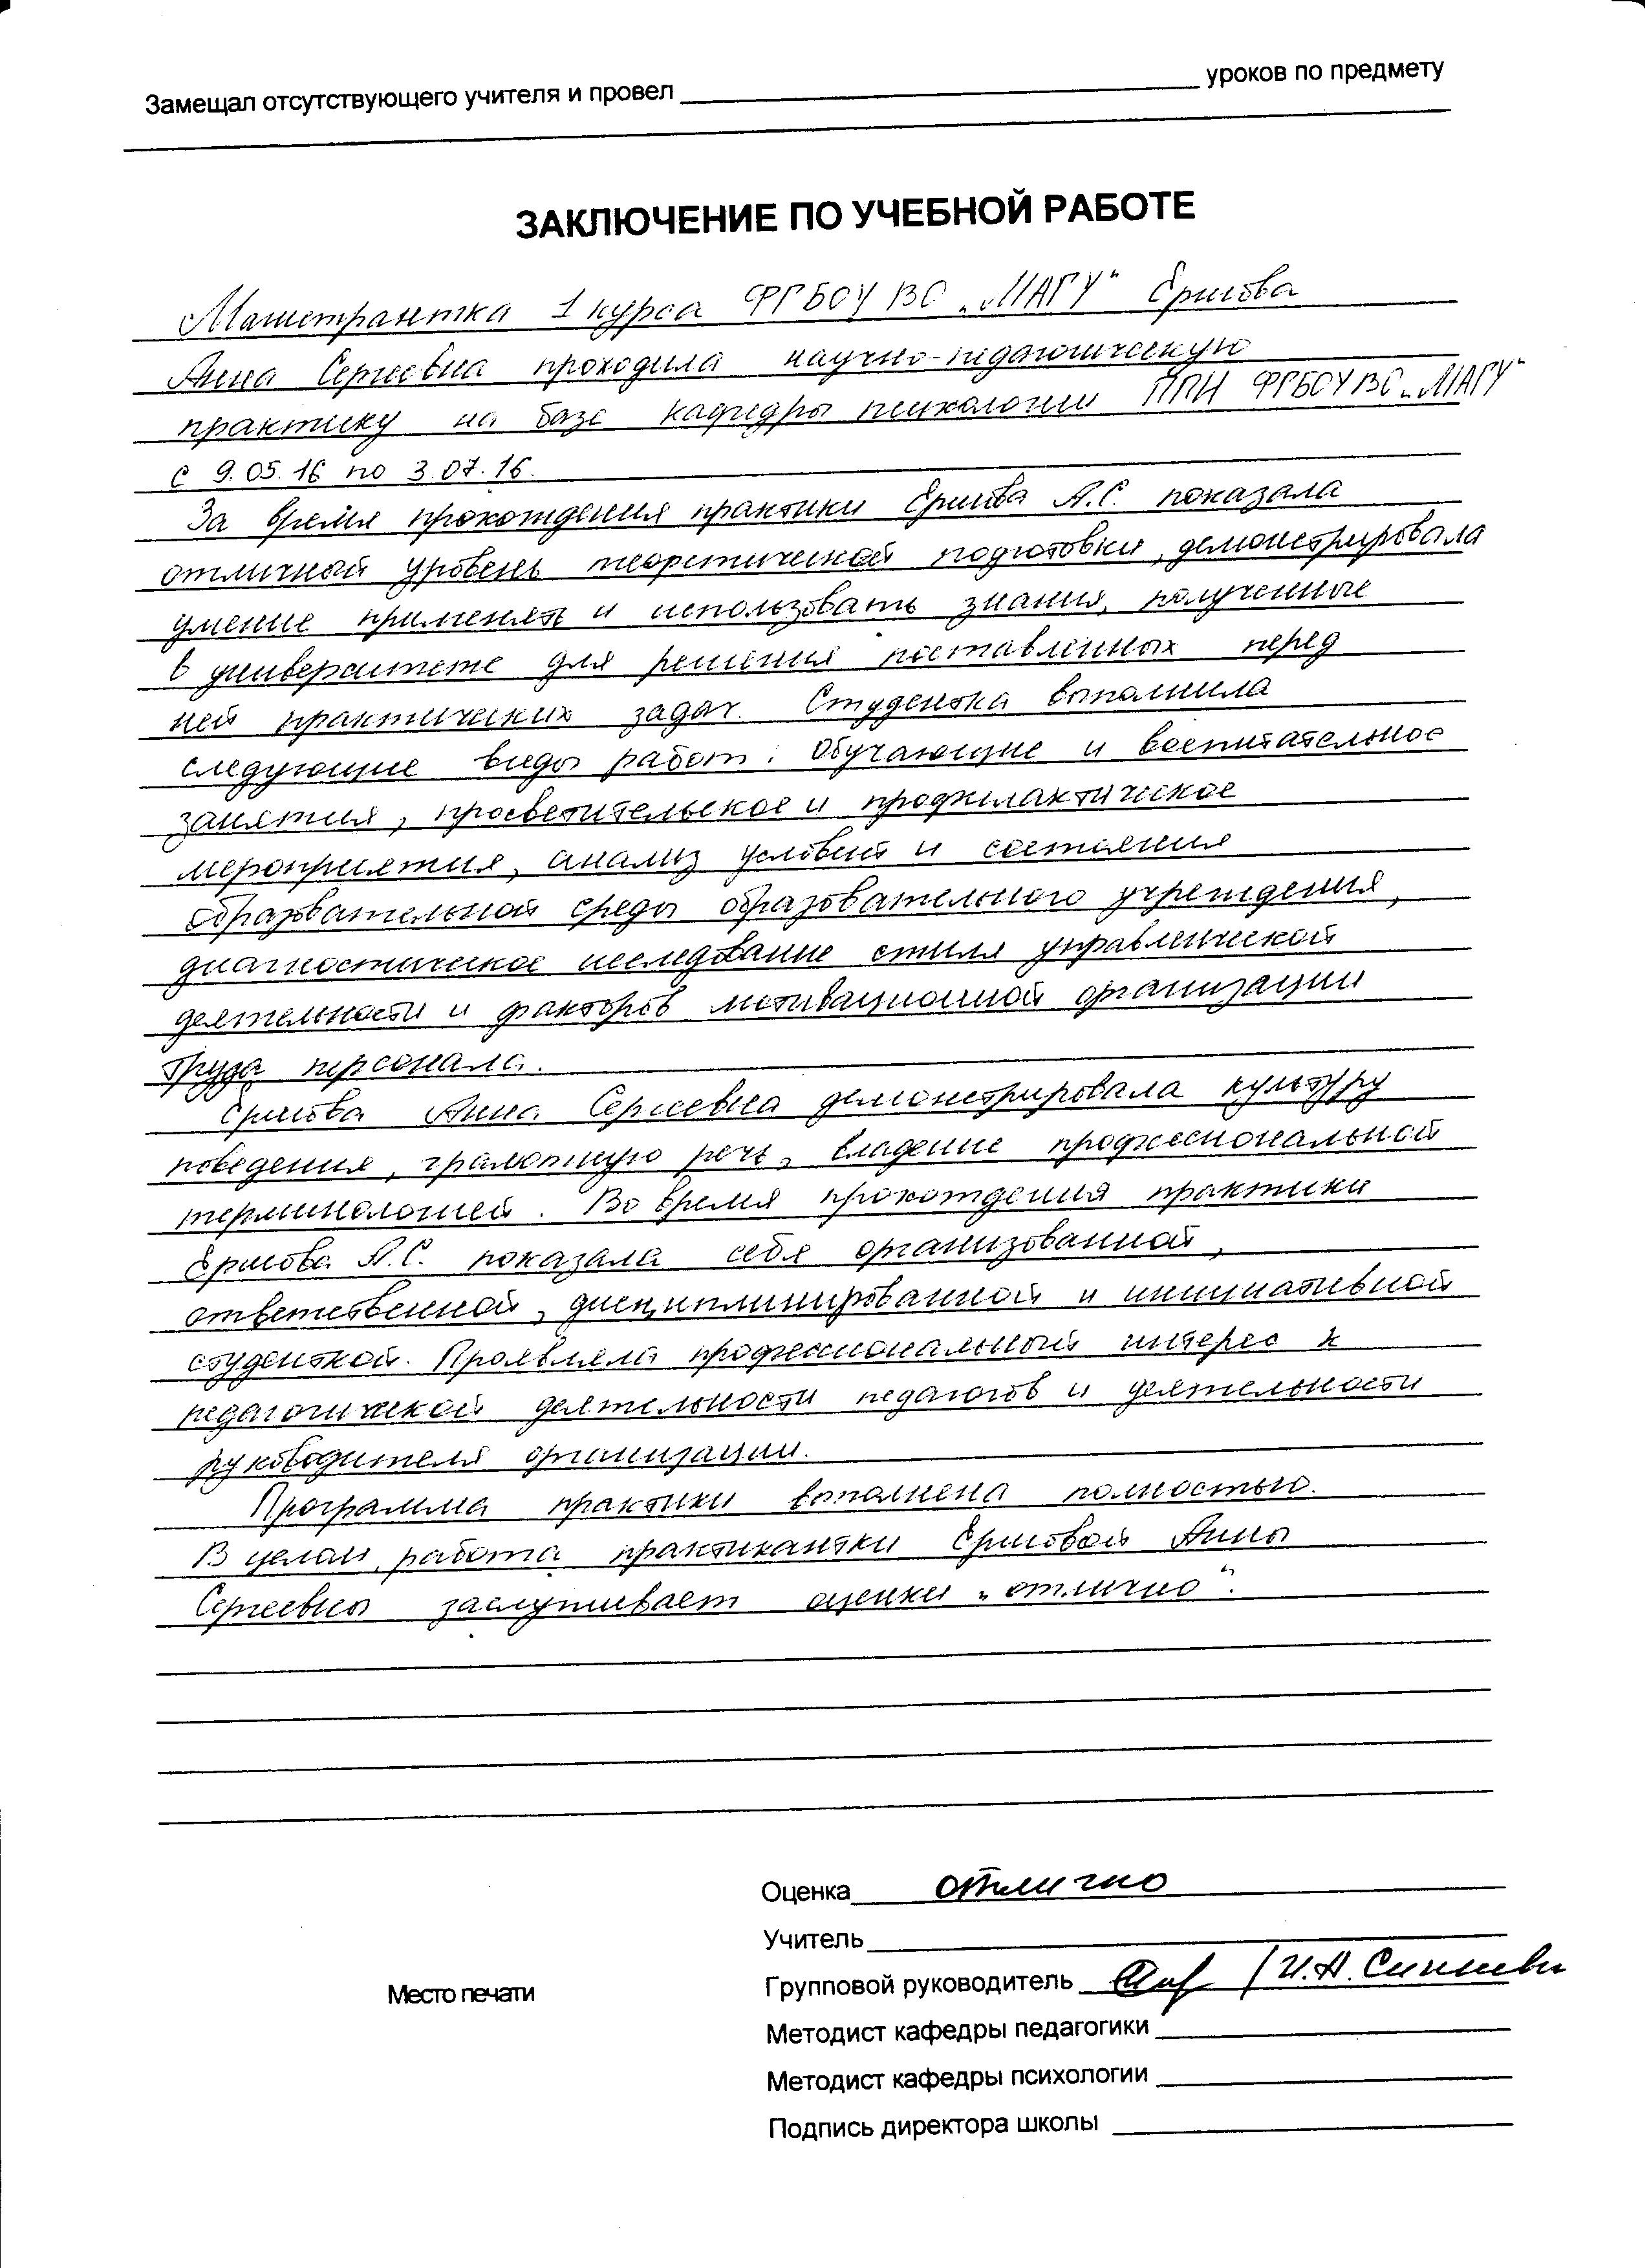 Замещал отсутствующего учителя и провел уроков по предмету
ЗАКЛЮЧЕНИЕ ПО УЧЕБНОЙ РАБОТЕ
Магистрантка 1 курса ФГБОУ ВО „МАГУ“ Ершова
Анна Сергеевна проходила научно-педагогическую
практику на базе кафедры психологии ППИ ФГБОУ ВО „МАГУ“
с 9.05.16 по 3.07.16.
За время прохождения практики Ершова А.С. показала
отличный уровень теоретической подготовки, демонстрировала
умение применять и использовать знания, полученные
в университете для решения поставленных перед
ней практических задач. Студентка выполнила
следующие виды работ: Обучающие и воспитательное
занятия, просветительское и профилактическое
мероприятия, анализ условий и состояния
образовательной среды образовательного учреждения,
диагностическое исследование стиля управленческой
деятельности и факторов мотивационной организации
труда персонала.
Ершова Анна Сергеевна демонстрировала культуру
поведения, грамотную речь, владение профессиональной
терминологией. Во время прохождения практики
Ершова А.С. показала себя организованной,
ответственной, дисциплинированной и инициативной
студенткой. Проявляла профессиональный интерес к
педагогической деятельности педагогов и деятельности
руководителя организации.
Программа практики выполнена полностью.
В целом, работа практикантки Ершовой Анны
Сергеевны заслуживает оценки „отлично“.
Оценка отлично
Учитель
Место печати
Групповой руководитель / И.А. Синкевич
Методист кафедры педагогики
Методист кафедры психологии
Подпись директора школы